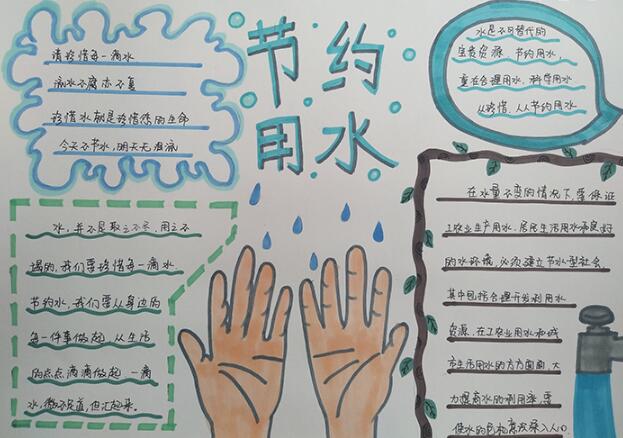 节约
用水
请珍惜每一滴水
流水不腐亦不复
珍惜水就是珍惜您的生命
今天不节水,明天无泪流
水是不可替代的
宝贵资源,节约用水,
重在合理用水、科学用水
从珍惜,人人节约用水
水,并不是取之不尽,用之不
竭的,我们要珍惜每一滴水
节约水,我们要从身边的
每一件事做起,从生活
的点点滴滴做起,一滴
水,微不足道,但汇起来。
在水量不变的情况下,要保证
工农业生产用水、居民生活用水和良好
的水环境,必须建立节水型社会,
其中包括合理开发利用水
资源,在工农业用水和城
市生活用水的方方面面,大
力提高水的利用率,要
使水的危机意识深入人心